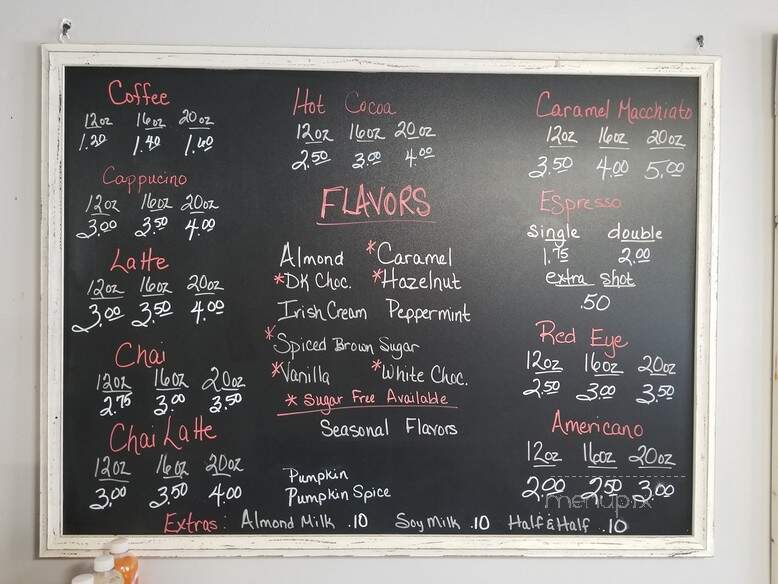 Coffee
12oz 16oz 20oz
1.20 1.40 1.60
Cappucino
12oz 16oz 20oz
3.00 3.50 4.00
Latte
12oz 16oz 20oz
3.00 3.50 4.00
Chai
12oz 16oz 20oz
2.75 3.00 3.50
Chai Latte
12oz 16oz 20oz
3.00 3.50 4.00
Hot Cocoa
12oz 16oz 20oz
2.50 3.00 4.00
FLAVORS
Almond *Caramel
*DK Choc. *Hazelnut
Irish Cream Peppermint
*Spiced Brown Sugar
*Vanilla *White Choc.
* Sugar Free Available
Seasonal Flavors
Pumpkin
Pumpkin Spice
Caramel Macchiato
12oz 16oz 20oz
3.50 4.00 5.00
Espresso
single double
1.75 2.00
extra shot
.50
Red Eye
12oz 16oz 20oz
2.50 3.00 3.50
Americano
12oz 16oz 20oz
2.00 2.50 3.00
menupix
Extras: Almond Milk .10 Soy Milk .10 Half & Half .10